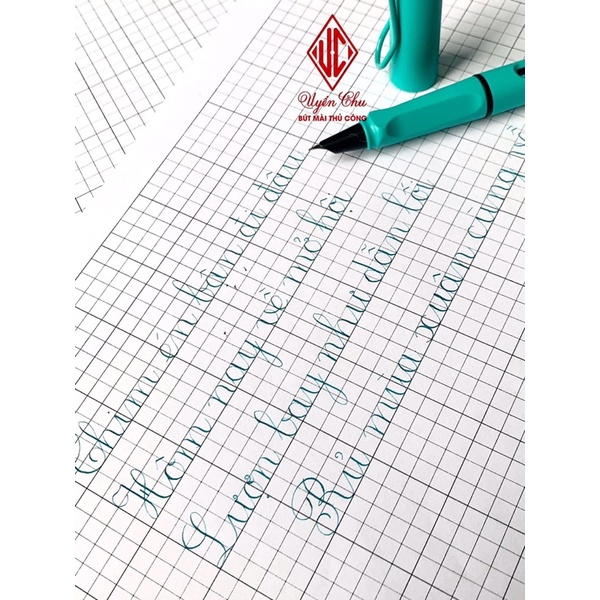 UC
Uyển Chu
BÚT MÀI THỦ CÔNG
Chim én bận đi đâu
Hôm nay về mở hội
Lượn bay như dẫn lối
Rủ mùa xuân cùng về